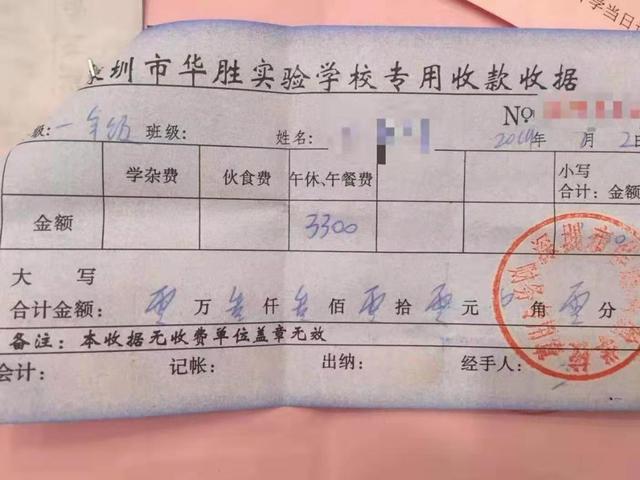 圳市华胜实验学校专用收款收据
No
级:一年级 班级: 姓名: 年 月2日
学杂费 伙食费 午休、午餐费 小写
合计:金额
金额 3300
大 写
合计金额: 零万叁仟叁佰零拾零元0角零分
备注:本收据无收费单位盖章无效
会计: 记帐: 出纳: 经手人: